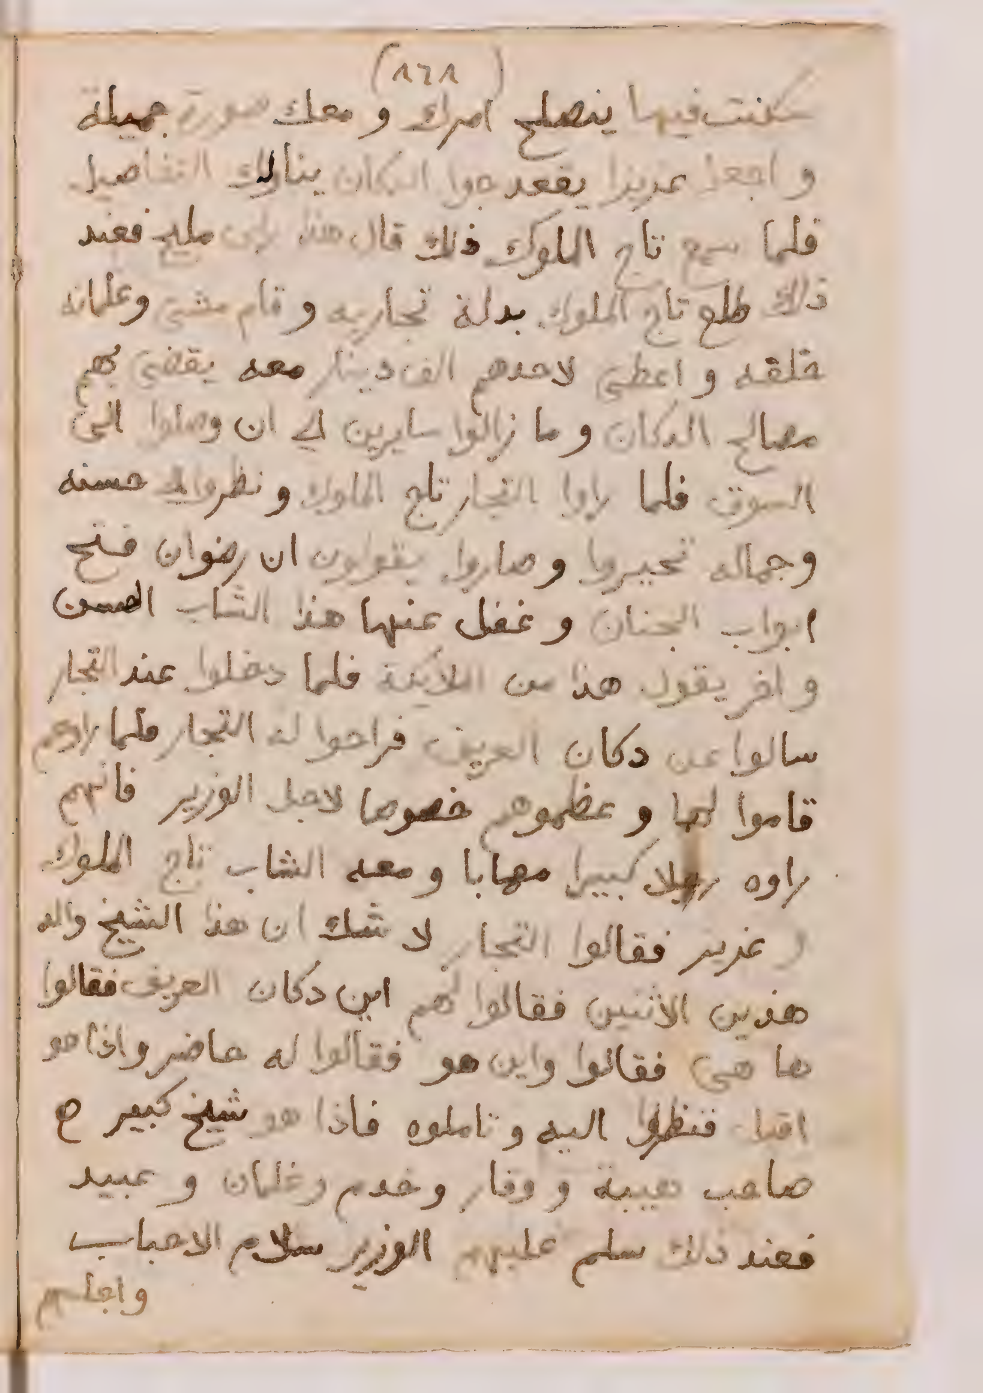 (٨٦٨)
سكنت فيها ينصلح امرك و معك صورة جميلة
و اجعل عزيزا يقعد جوا الدكان يناولك التفاصيل
فلما سمع تاج الملوك ذلك قال هذا راي مليح فعند
ذلك طلع تاج الملوك بدلة تجاريه و قام مشى وغلمانه
خلفه و اعطى لاحدهم الف دينار معه يقضى بهم
مصالح الدكان و ما زالوا سايرين الى ان وصلوا الى
السوق فلما راوا التجار تاج الملوك و نظروا الى حسنه
وجماله تحيروا و صاروا يقولون ان رضوان فتح
ابواب الجنان و غفل عنها هذا الشاب الحسن
و اخر يقول هذا من الملائكة فلما دخلوا عند التجار
سالوا عن دكان العريف فراحوا له التجار فلما راوهم
قاموا لهما و عظموهم خصوصا لاجل الوزير فانهم
راوه رجلا كبيرا مهابا و معه الشاب تاج الملوك
و عزيز فقالوا التجار لا شك ان هذا الشيخ والد
هذين الاثنين فقالوا لهم اين دكان العريف فقالوا
ها هى فقالوا واين هو فقالوا له حاضر واذا هو
اقبل فنظروا اليه و تاملوه فاذا هو شيخ كبير ص
صاحب هيبة و وقار و خدم وغلمان و عبيد
فعند ذلك سلم عليهم الوزير سلام الاحباب
واجلسهم